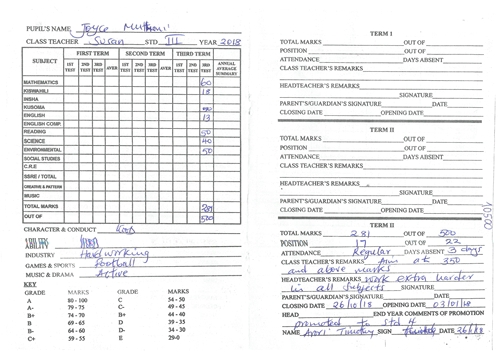 PUPIL'S NAME Joyce Muthoni
CLASS TEACHER Susan STD III YEAR 2018
SUBJECT FIRST TERM SECOND TERM THIRD TERM ANNUAL AVERAGE SUMMARY
1ST TEST 2ND TEST 3RD TEST AVER 1ST TEST 2ND TEST 3RD TEST AVER 1ST TEST 2ND TEST 3RD TEST
MATHEMATICS 60
KISWAHILI 18
INSHA
KUSOMA
ENGLISH 13
ENGLISH COMP.
READING 50
SCIENCE 40
ENVIRONMENTAL 50
SOCIAL STUDIES
C.R.E
SSRE / TOTAL
CREATIVE & PATTERN
MUSIC
TOTAL MARKS 281
OUT OF 500
CHARACTER & CONDUCT Kind
ABILITY
INDUSTRY Hardworking
GAMES & SPORTS Football
MUSIC & DRAMA Active
KEY
GRADE MARKS GRADE MARKS
A 80 - 100 C 54 - 50
A- 79 - 75 C- 49 - 45
B+ 74 - 70 B+ 44 - 40
B 69 - 65 D 39 - 35
B- 64 - 60 D- 34 - 30
C+ 59 - 55 E 29-0
TERM I
TOTAL MARKS OUT OF
POSITION OUT OF
ATTENDANCE DAYS ABSENT
CLASS TEACHER'S REMARKS
HEADTEACHER'S REMARKS
SIGNATURE
PARENT'S/GUARDIAN'S SIGNATURE DATE
CLOSING DATE OPENING DATE
TERM II
TOTAL MARKS OUT OF
POSITION OUT OF
ATTENDANCE DAYS ABSENT
CLASS TEACHER'S REMARKS
HEADTEACHER'S REMARKS
SIGNATURE
PARENT'S/GUARDIAN'S SIGNATURE DATE
CLOSING DATE OPENING DATE
TERM II
TOTAL MARKS 281 OUT OF 500
POSITION 17 OUT OF 22
ATTENDANCE Regular DAYS ABSENT 3 days
CLASS TEACHER'S REMARKS Aim at 350
and above marks
HEADTEACHER'S REMARKS Work extra harder
in all subjects SIGNATURE
PARENT'S/GUARDIAN'S SIGNATURE DATE
CLOSING DATE 26/10/18 OPENING DATE 03/01/19
HEAD END YEAR COMMENTS OF PROMOTION
promoted to std 4
NAME Timothy SIGN DATE
10500